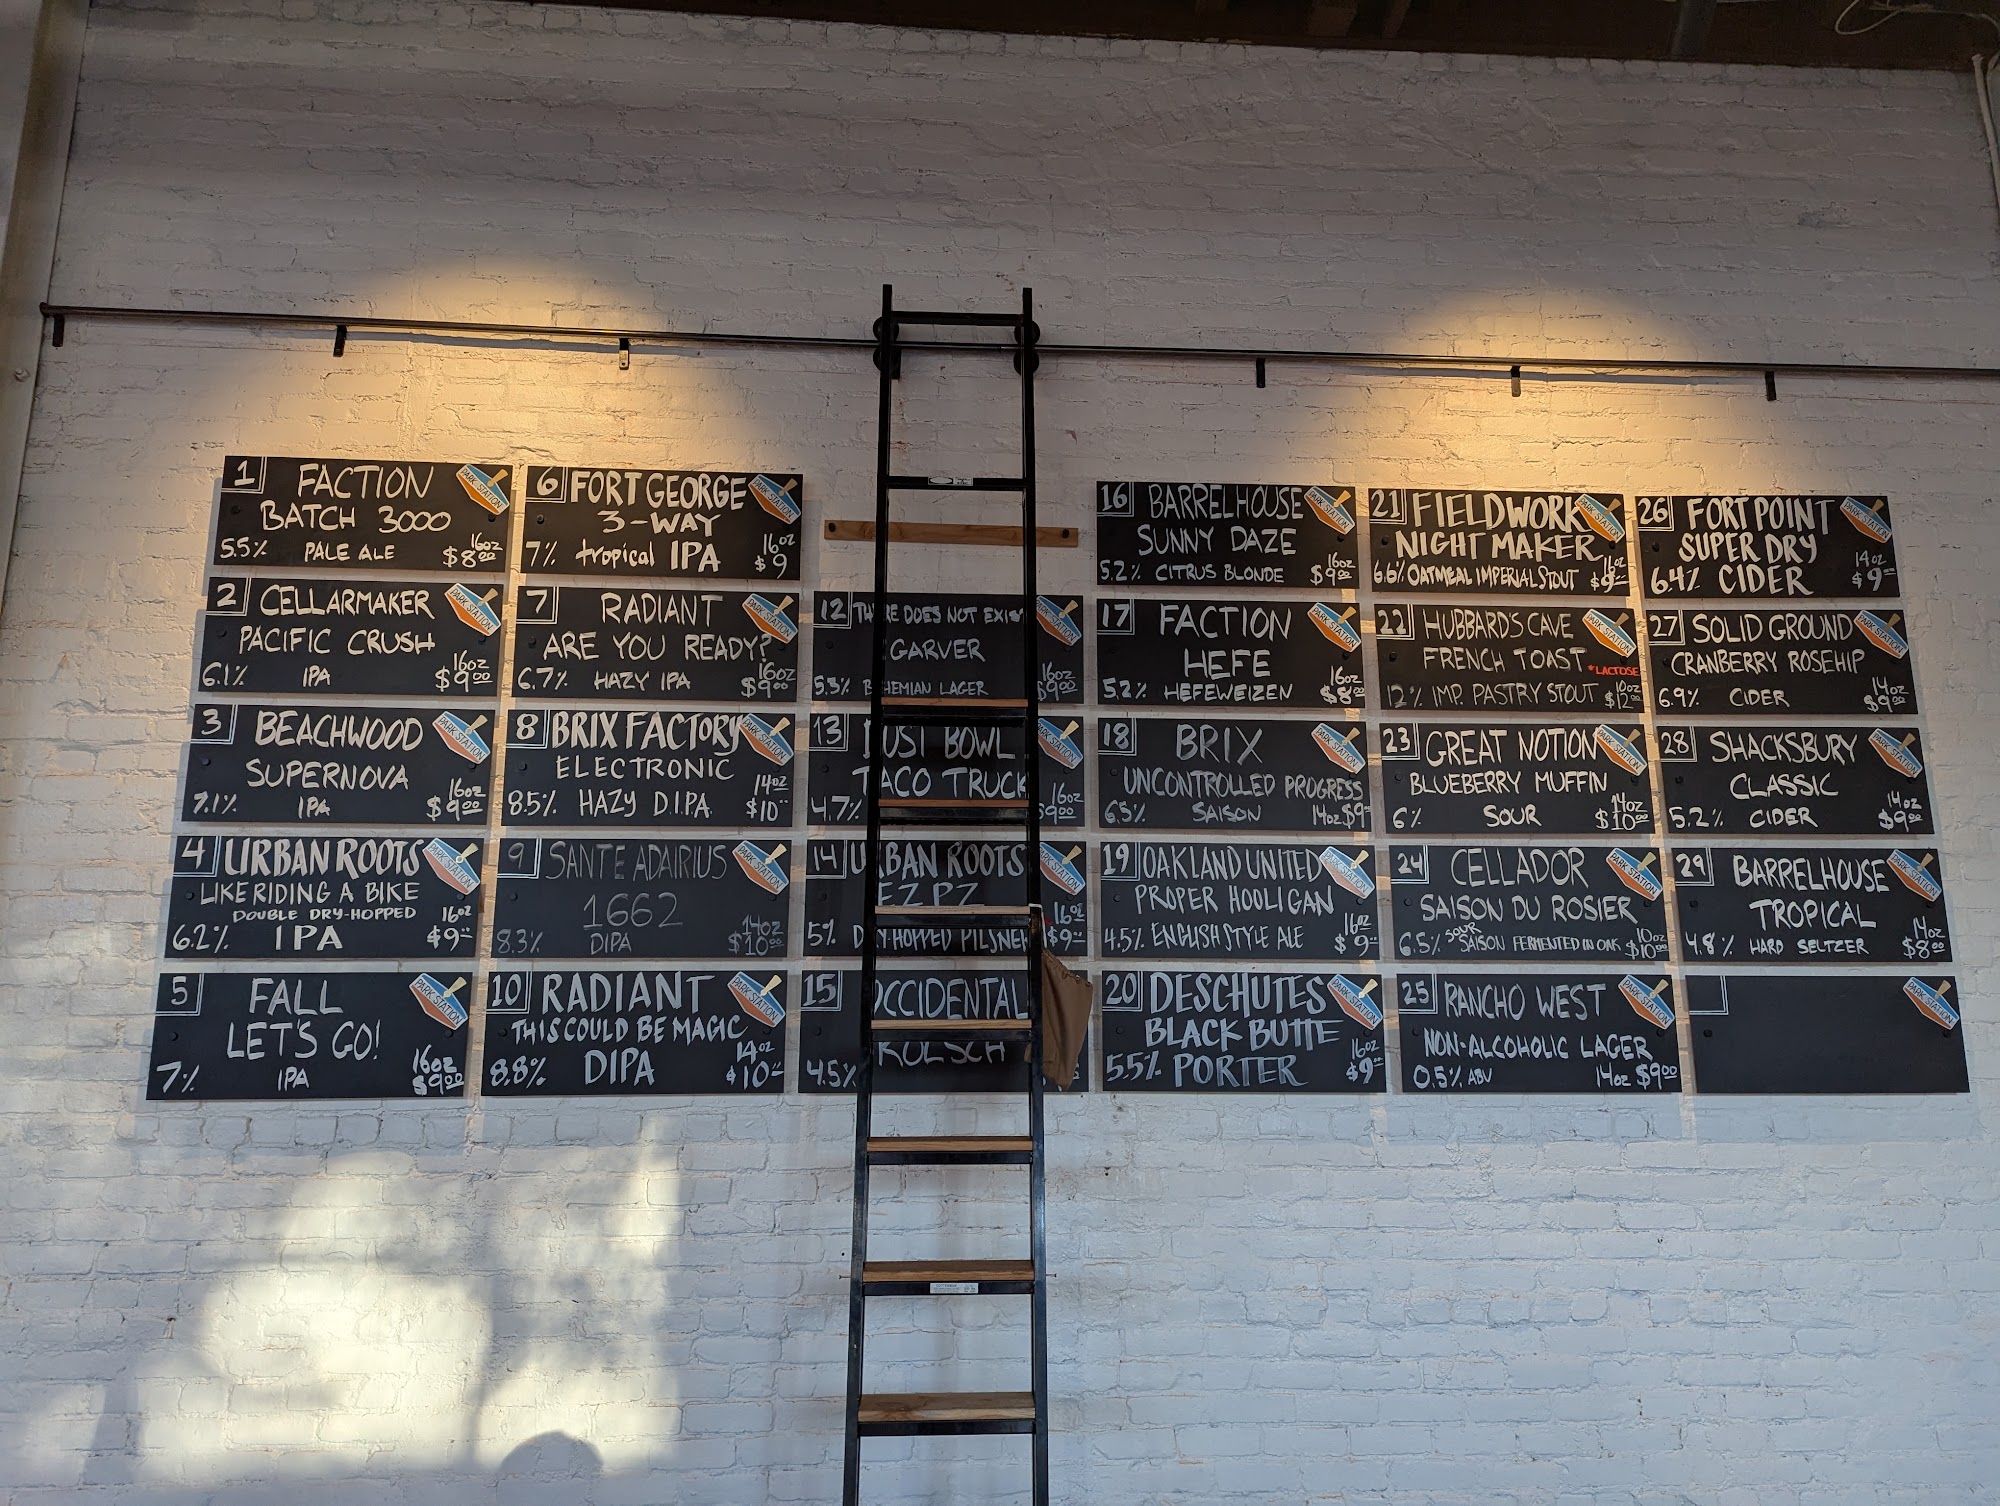 1 FACTION
BATCH 3000
5.5% PALE ALE 16oz $8.00
PARK STATION
2 CELLARMAKER
PACIFIC CRUSH
6.1% IPA 16oz $9.00
PARK STATION
3 BEACHWOOD
SUPERNOVA
7.1% IPA 16oz $9.00
PARK STATION
4 URBAN ROOTS
LIKE RIDING A BIKE
DOUBLE DRY-HOPPED
6.2% IPA 16oz $9
PARK STATION
5 FALL
LET'S GO!
7% IPA 16oz $9.00
PARK STATION
6 FORT GEORGE
3-WAY
7% tropical IPA 16oz $9
PARK STATION
7 RADIANT
ARE YOU READY?
6.7% HAZY IPA 16oz $9.00
PARK STATION
8 BRIX FACTORY
ELECTRONIC
8.5% HAZY D.I.P.A. 14oz $10
PARK STATION
9 SANTE ADAIRIUS
1662
8.3% DIPA 14oz $10.00
PARK STATION
10 RADIANT
THIS COULD BE MAGIC
8.8% DIPA 14oz $10
PARK STATION
12 DOES NOT EXIST
GARVER
5.3% LAGER 16oz $9.00
PARK STATION
13 BOWL
TACO TRUCK
4.7% 16oz $9.00
PARK STATION
14 URBAN ROOTS
EZ PZ
5% DRY-HOPPED PILSNER 16oz $9
PARK STATION
15 OCCIDENTAL
KOLSCH
4.5%
16 BARRELHOUSE
SUNNY DAZE
5.2% CITRUS BLONDE 16oz $9.00
PARK STATION
17 FACTION
HEFE
5.2% HEFEWEIZEN 16oz $8.00
PARK STATION
18 BRIX
UNCONTROLLED PROGRESS
6.5% SAISON 14oz $9
PARK STATION
19 OAKLAND UNITED
PROPER HOOLIGAN
4.5% ENGLISH STYLE ALE 16oz $9
PARK STATION
20 DESCHUTES
BLACK BUTTE
5.5% PORTER 16oz $9
PARK STATION
21 FIELDWORK
NIGHT MAKER
6.6% OATMEAL IMPERIAL STOUT 16oz $9
PARK STATION
22 HUBBARD'S CAVE
FRENCH TOAST *LACTOSE
12% IMP. PASTRY STOUT 10oz $12.00
PARK STATION
23 GREAT NOTION
BLUEBERRY MUFFIN
6% SOUR 14oz $10.00
PARK STATION
24 CELLADOR
SAISON DU ROSIER
6.5% SOUR SAISON FERMENTED IN OAK 10oz $10.00
PARK STATION
25 RANCHO WEST
NON-ALCOHOLIC LAGER
0.5% ABV 14oz $9.00
PARK STATION
26 FORT POINT
SUPER DRY
6.4% CIDER 14oz $9
PARK STATION
27 SOLID GROUND
CRANBERRY ROSEHIP
6.9% CIDER 14oz $9.00
PARK STATION
28 SHACKSBURY
CLASSIC
5.2% CIDER 14oz $9.00
PARK STATION
29 BARRELHOUSE
TROPICAL
4.8% HARD SELTZER 14oz $8.00
PARK STATION
PARK STATION